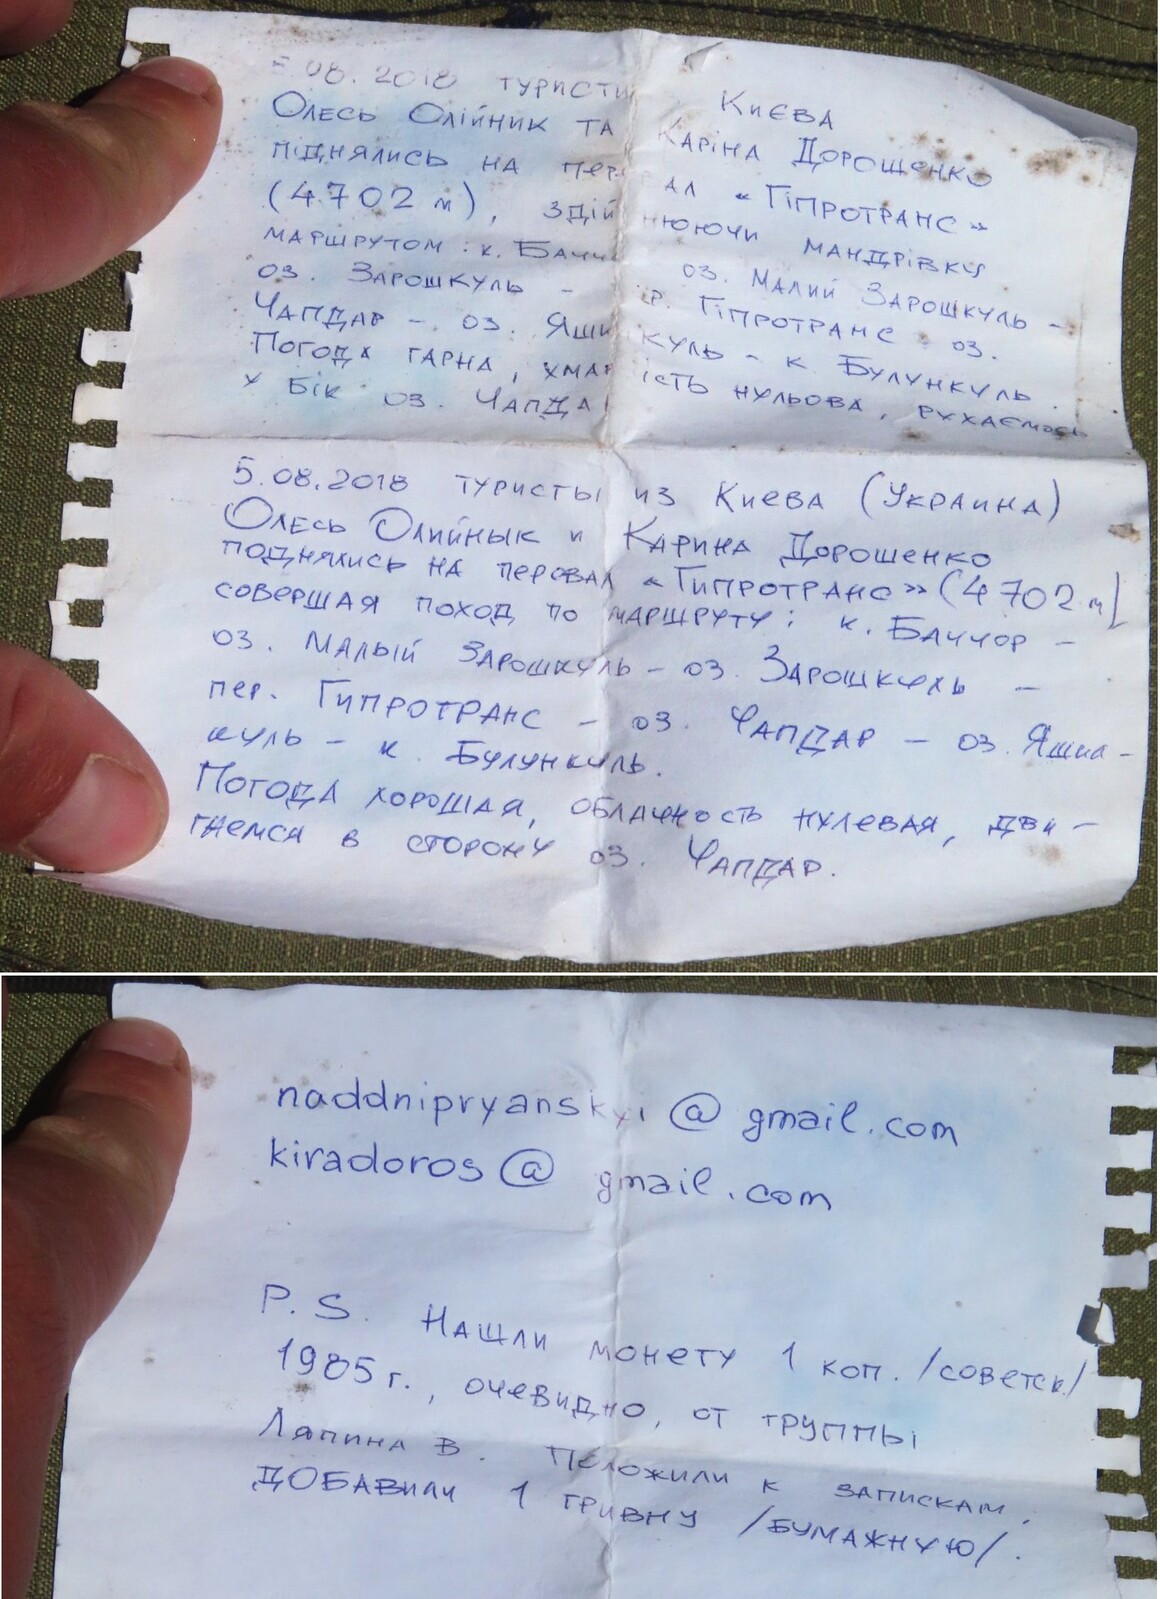 5.08.2018 туристи Києва
Олесь Олійник та Каріна Дорощенко
піднялись на пер ал «Гіпротранс»
(4702 м), здій нюючи мандрівку
маршрутом: к. Бачч оз. Малий Зарошкуль –
оз. Зарошкуль – р. Гіпротранс – оз.
Чапдар – оз. Яши куль – к. Булункуль.
Погода гарна, хмар ість нульова, рухаємось
у бік оз. Чапда
5.08.2018 туристы из Киева (Украина)
Олесь Олийнык и Карина Дорошенко
поднялись на перовал «Гипротранс» (4702 м)
совершая поход по маршруту: к. Баччор –
оз. Малый Зарошкуль – оз. Зарошкуль –
пер. Гипротранс – оз. Чапдар – оз. Яшил-
куль – к. Булункуль.
Погода хорошая, облачность нулевая, дви-
гаемся в сторону оз. Чапдар.
naddnipryanskyi@gmail.com
kiradoros@gmail.com
P.S. Нашли монету 1 коп. /советск/
1985 г., очевидно, от группы
Ляпина В. Положили к запискам.
Добавили 1 гривну /бумажную/.